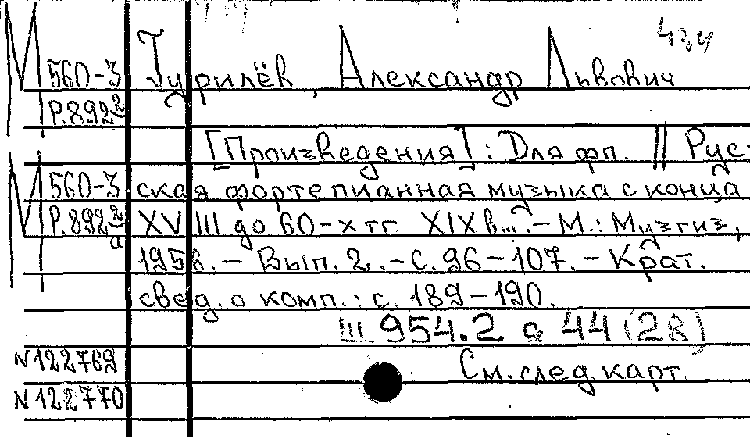 434
М 560-3 Гурилёв, Александр Львович
Р.892 2
[Произведения]: Для фп. || Рус-
М 560-3 ская фортепианная музыка с конца
Р.892 2 а XVIII до 60-х гг XIX в... – М.: Музгиз,
195 – Вып. 2. – С. 96–107. – Крат.
свед. о комп.: с. 189–190.
Ш 954.2 а 44 (2в)
N122769 См. след. карт.
N122770